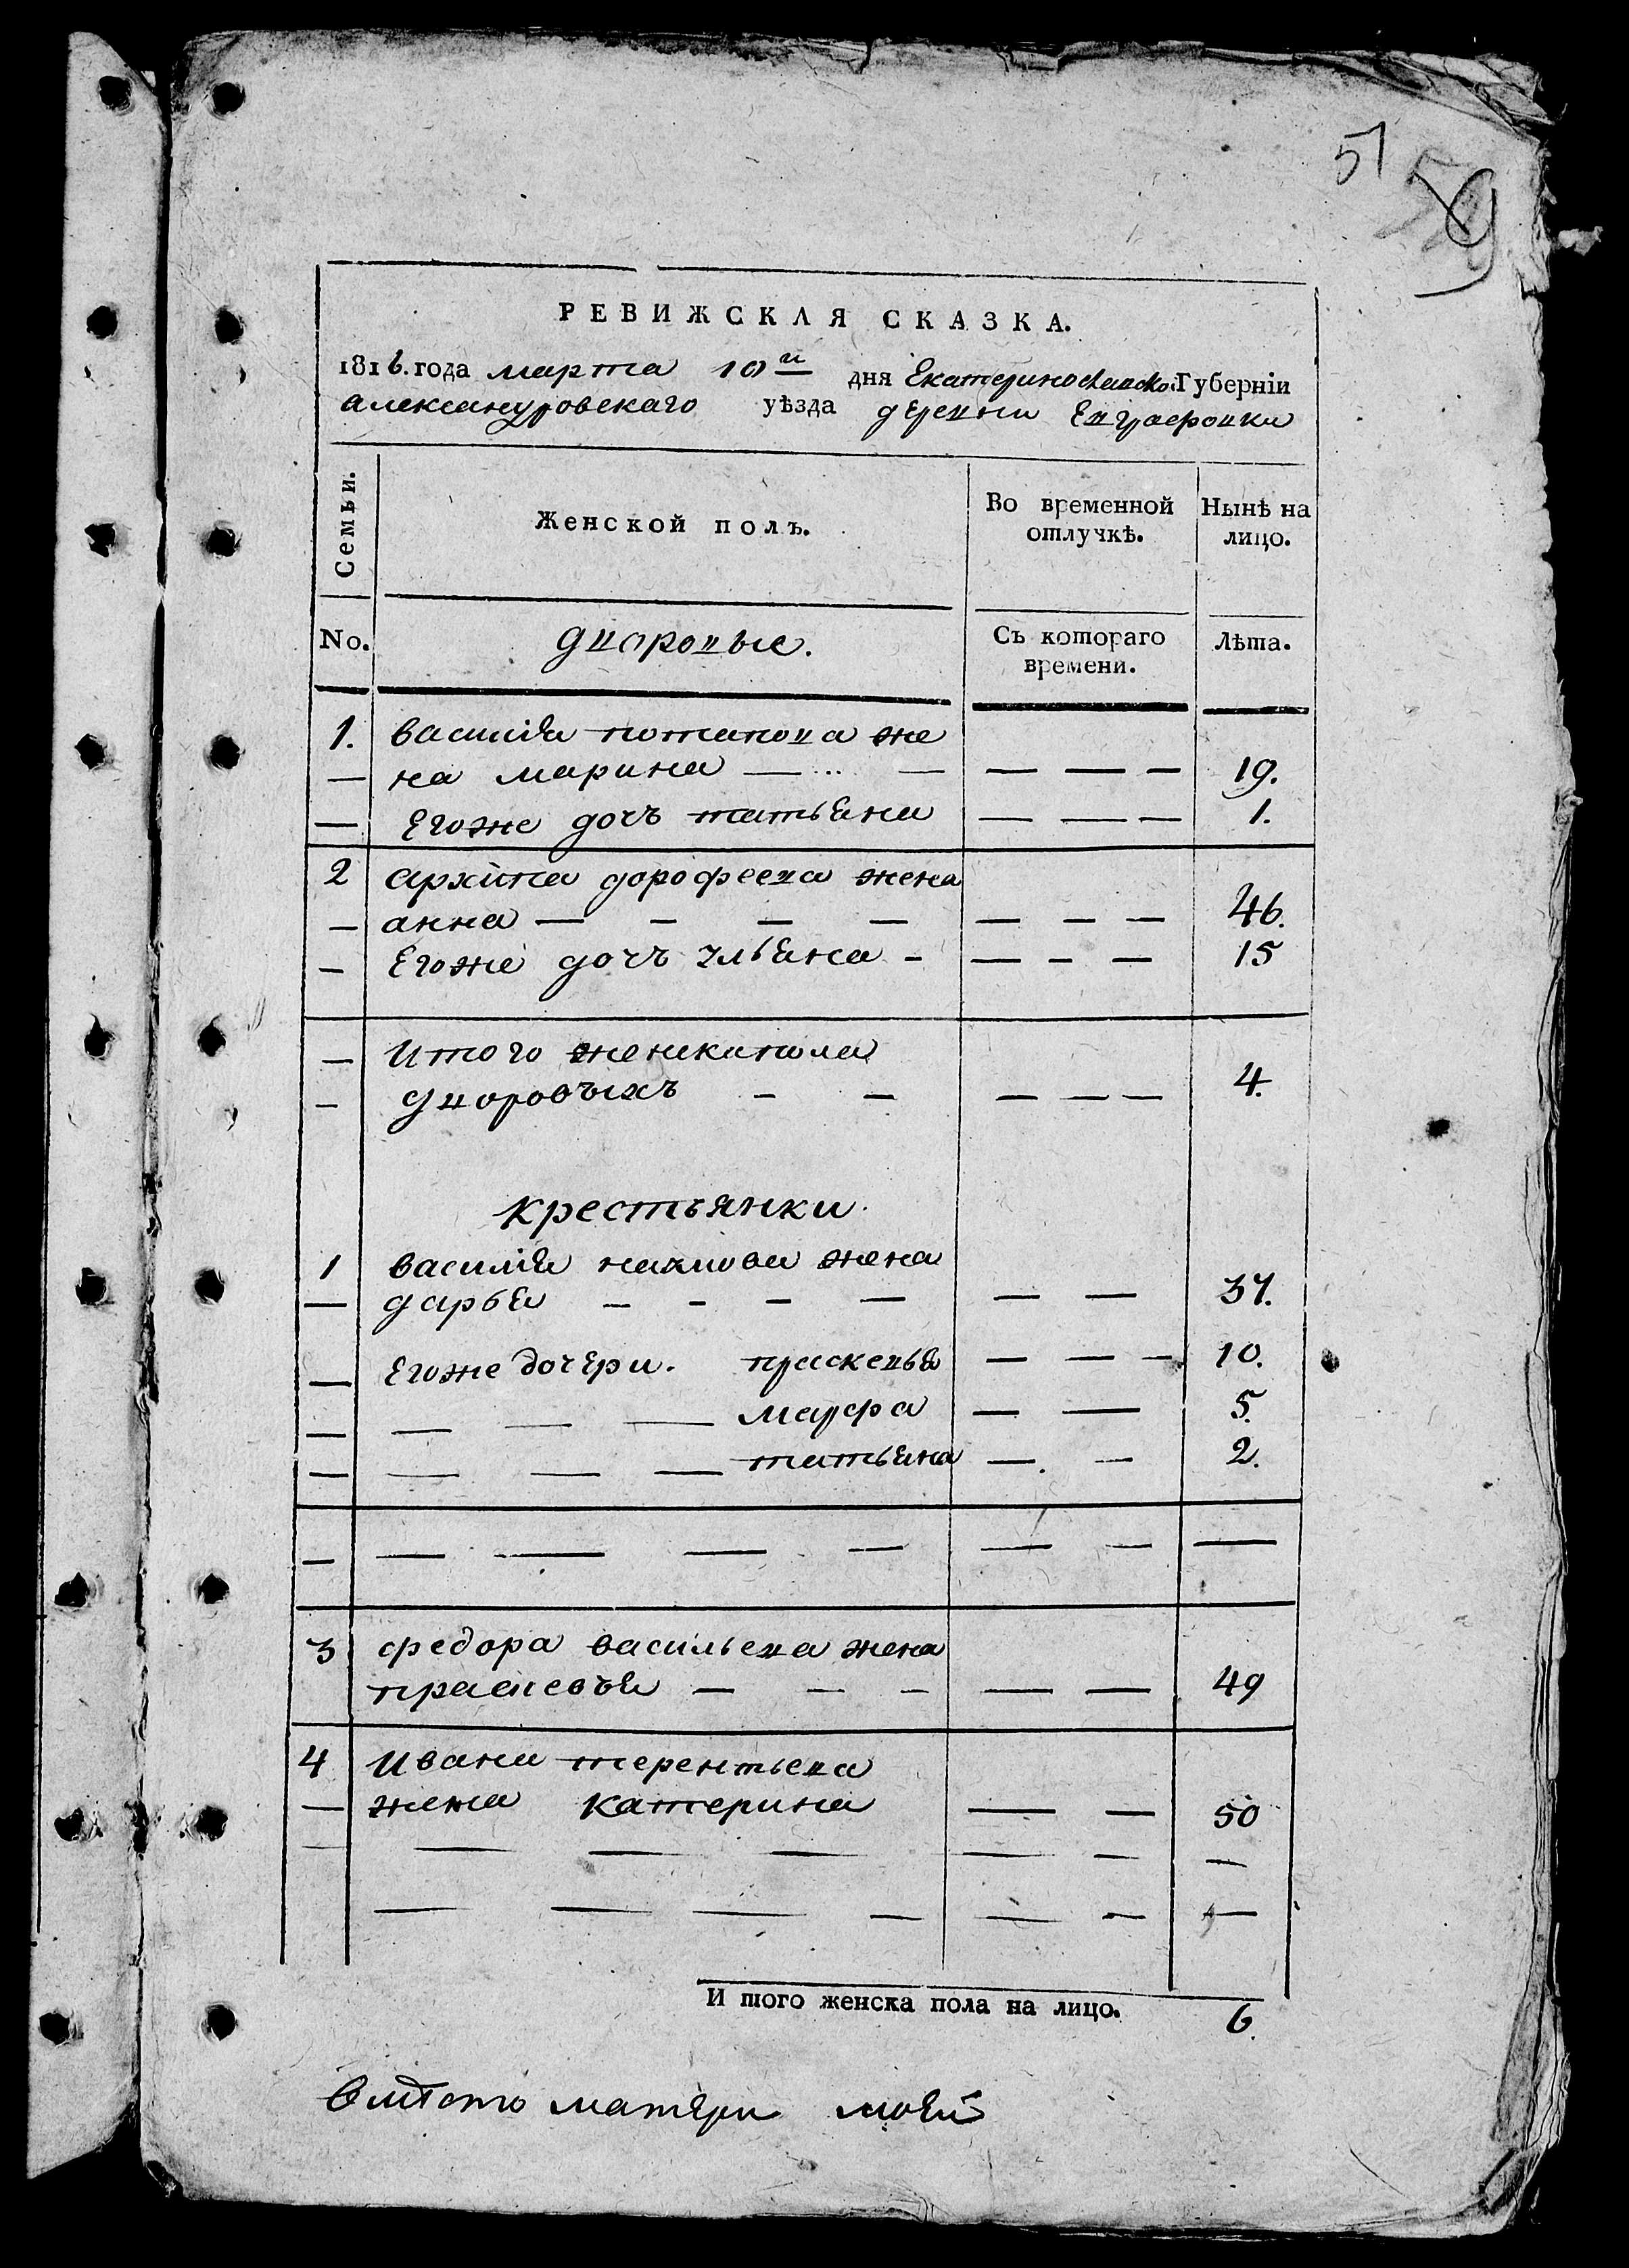 51 59
РЕВИЖСКАЯ СКАЗКА.
1816. года марта 10й дня Екатеринославской Губерніи
александровскаго уѣзда деревни Евграфовки
Семьи. Женской полъ. Во временной отлучкѣ. Нынѣ на лицо.
No. дворовые. Съ котораго времени. Лѣта.
1. василія потапова же
— на марина — — — — — 19.
— Егоже дочь татьяна — — — 1.
2 архипа дорофеева жена
— анна — — — — — — — 46.
— Егоже дочъ ульяна - — - — 15
— Итого женска пола
— дворовъıхъ — — — — — 4.
крестьянки
1 василія жена
— дарья — — — — — — 37.
— Егоже дочери. прасковья — — — 10.
— — — — марфа — — 5.
— — — — татьяна — — 2.
— — — — — — — —
3 федора васильева жена
прасковья — — — — — 49
4 Ивана терентьева
— жена катерина — — 50
— — — — — — —
— — — — — — —
И того женска пола на лицо. 6.
Вмѣсто матери моей